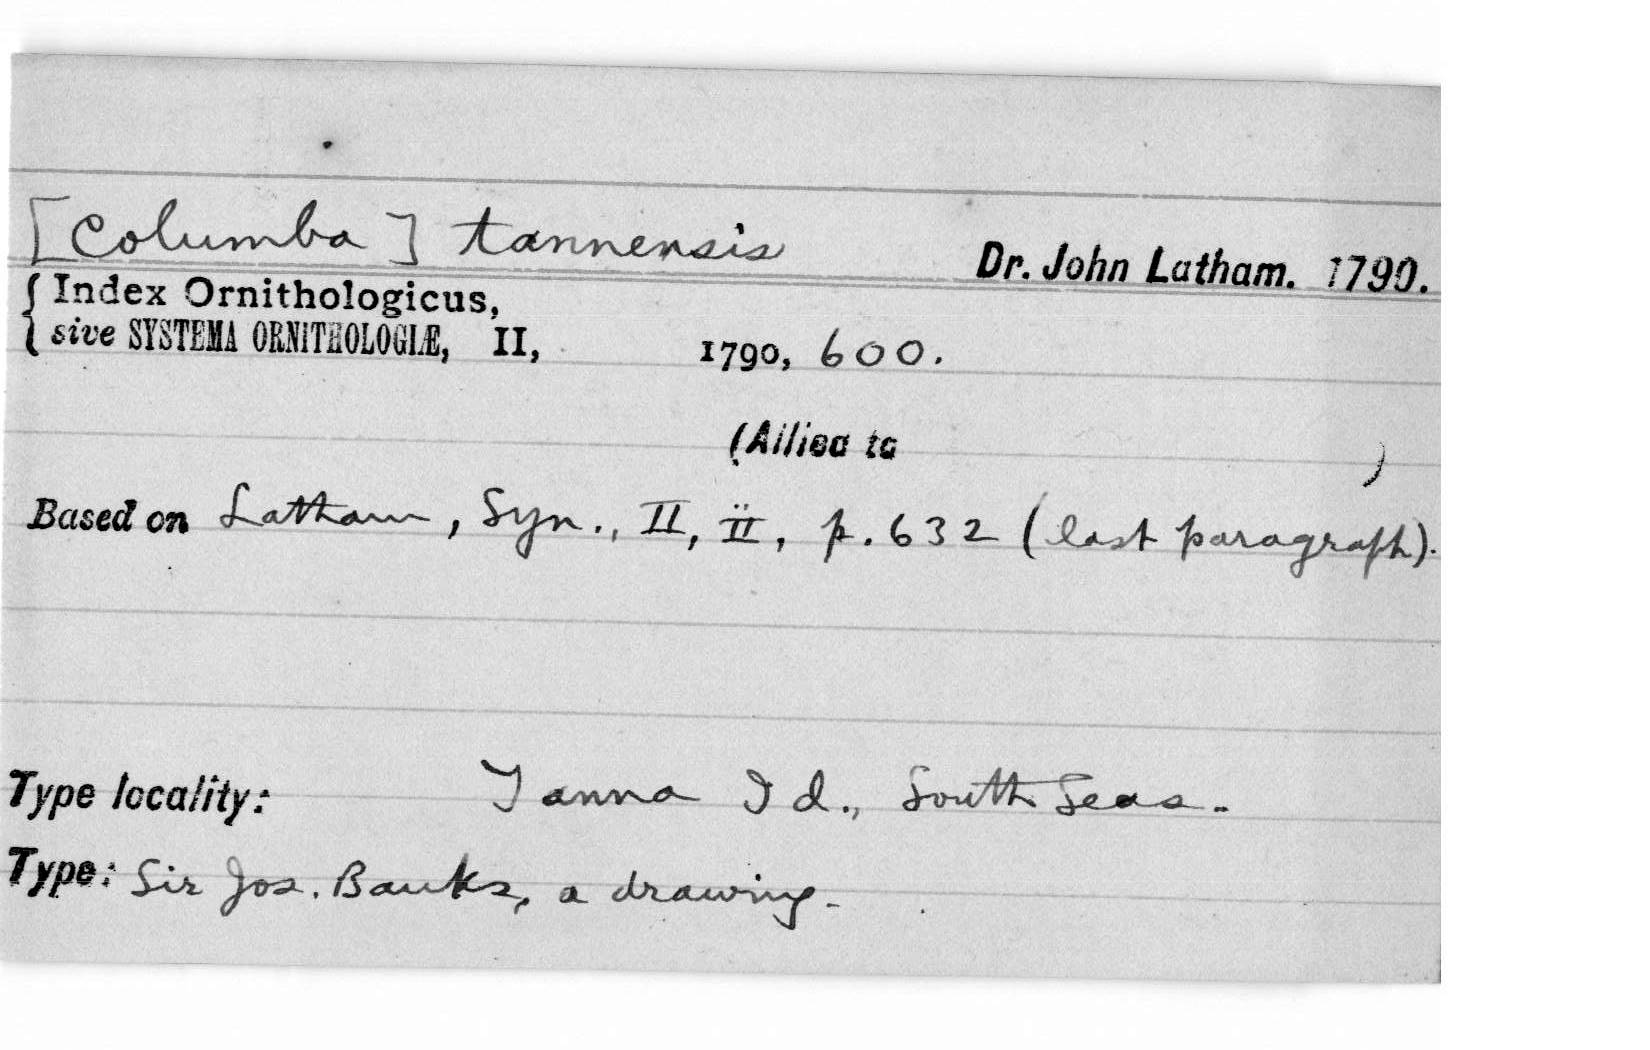 [Columba] tannensis Dr. John Latham. 1790.
Index Ornithologicus,
sive SYSTEMA ORNITHOLOGIÆ, II, 1790, 600.
(Allied to )
Based on Latham, Syn., II, ii, p. 632 (last paragraph).
Type locality: Tanna Id., South Seas.
Type: Sir Jos. Banks, a drawing.